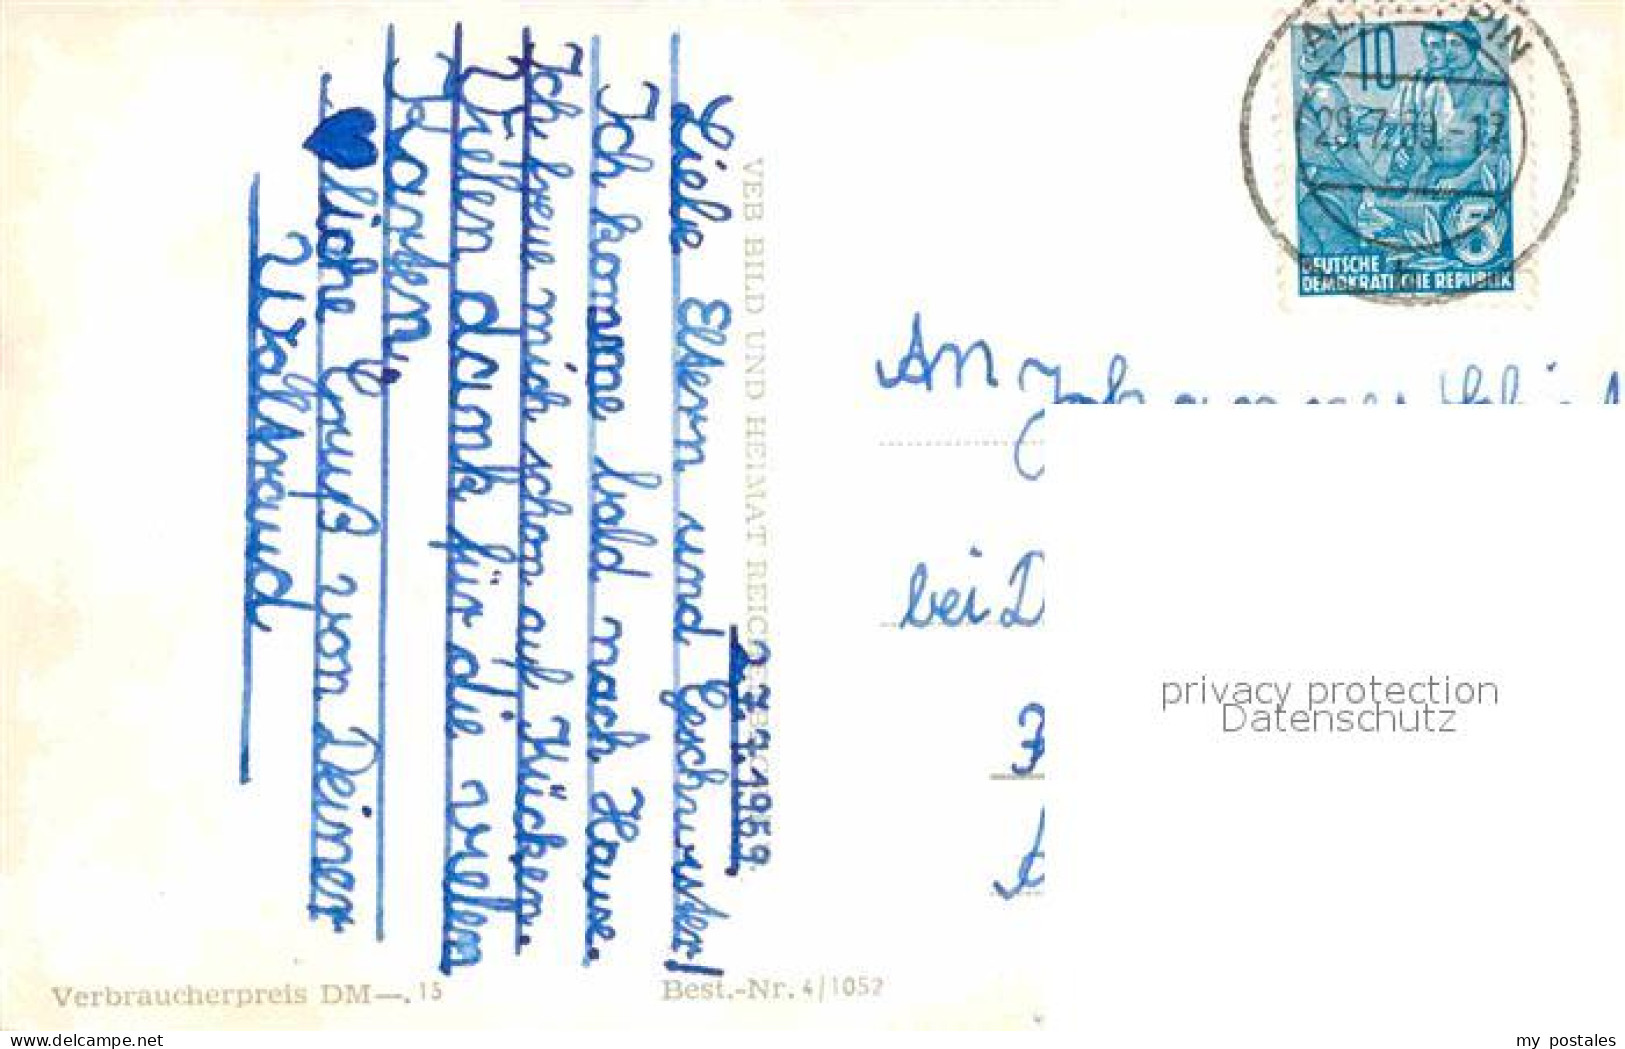 27.7.1959.
Liebe Eltern und Geschwister!
Ich komme bald nach Hause.
Ich freue mich schon auf Kücken.
Vielen dank für die vielen
Karten.
♥liche Gruß von Deiner
Waltraud
VEB BILD UND HEIMAT REICHENBACH
Verbraucherpreis DM—.15
Best.-Nr. 4/1052
10
29.7.59.-17
5
DEUTSCHE
DEMOKRATISCHE REPUBLIK
An Johannes
bei D
privacy protection
Datenschutz
www.ansichtskartenversand.com
my postales